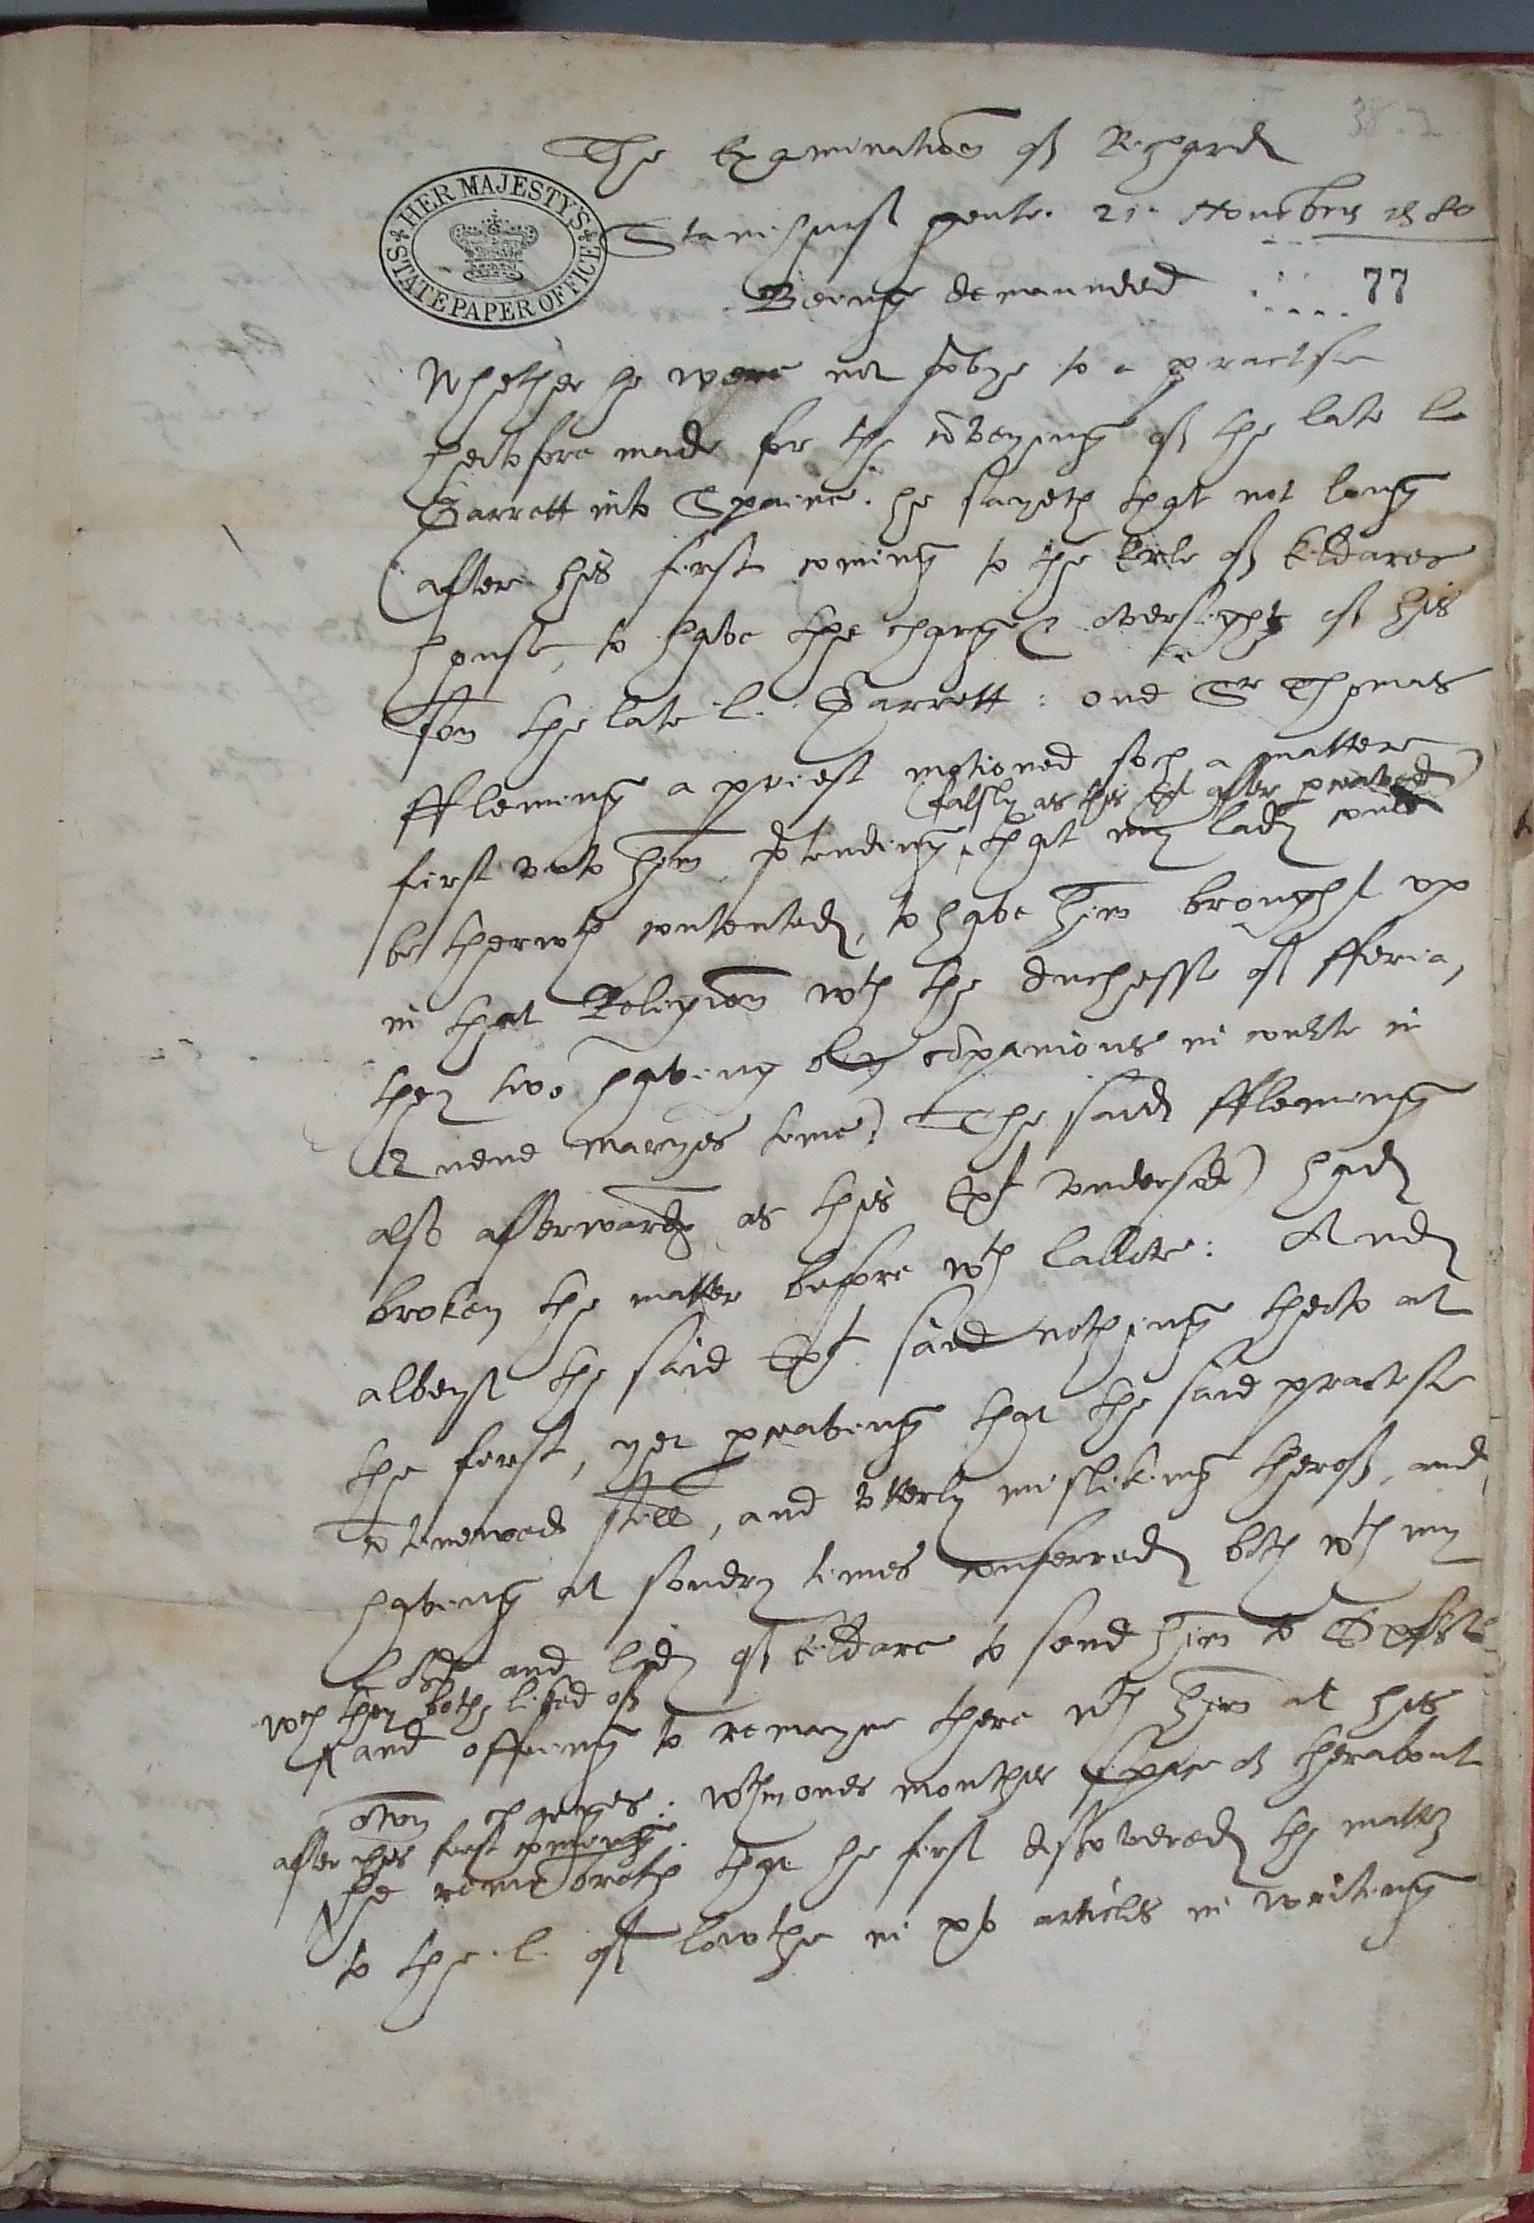 38.2
The Examination of Richard
Stanihurst gent. 21. Novembris 1580
HER MAJESTY'S STATE PAPER OFFICE
Being demaunded
77
Whether he were not pryvye to a practise
heretofore made for the conveying of the late L
Garrett into Spaine: he sayeth that not long
after his first coming to the Erle of Kildares
house, to have the charge & oversight of his
son the late L. Garrett: one Sr Thomas
ffleming a priest motioned soch a matter
(falsly as this Ext after preaved)
first unto him, ptending, that my lady could
be therwth contented, to have him brought up
in that Religion wth the duchesse of fferia,
they two having ben companions in courte in
Quene Maryes tyme? The said ffleming
also afterwards (as this Ext understode) had
broken the matter before wth : And
albeyt the said Ext said nothing therto at
the first, yet preaving that the said practise
contenewed still, and utterly misliking therof, and
having at sondry times conferred both wth my
Lord and lady of Kildare to send him to
wch they both liked of
and offering to remayne there wth him at his
own charges: wthin ones monthes space or therabout
after his first coming
he remembreth that he first discovered the matter
to the L. of Lowthe in articles in writing